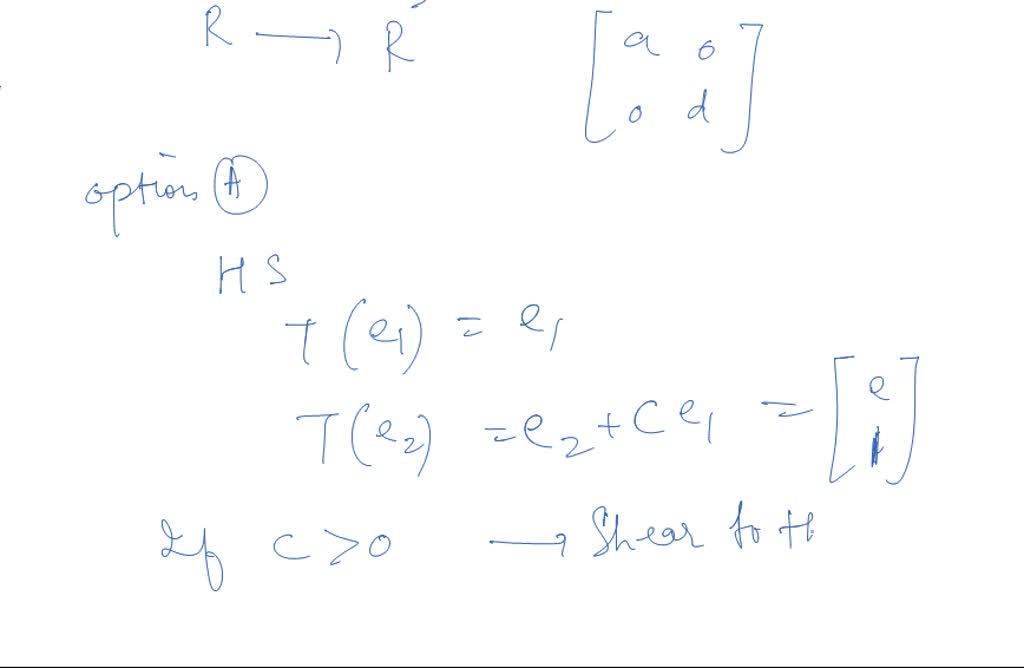 R → R [a o
o d]
option (A)
H S
T(e1) = e1
T(e2) = e2 + C e1 = [e
1]
If c > 0 → Shear to th